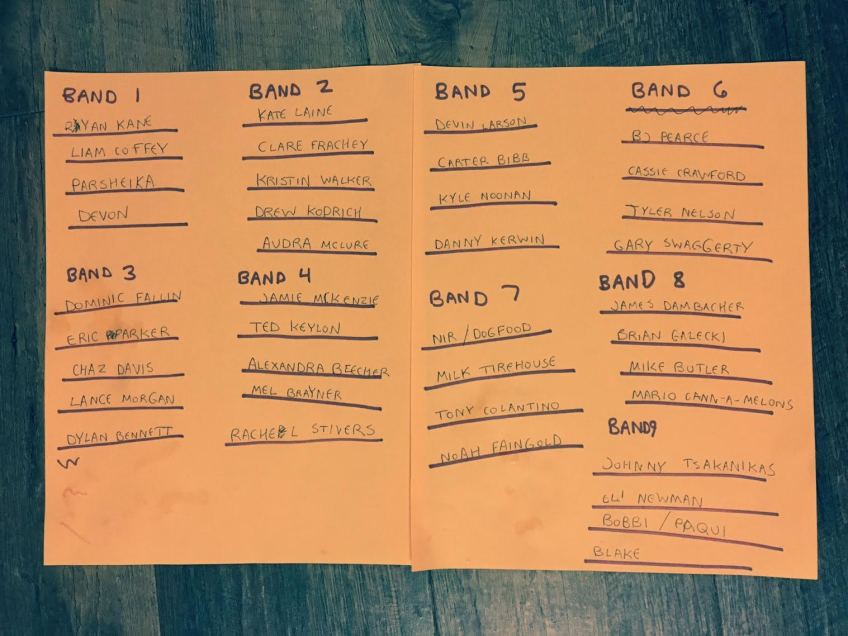 BAND 1
RYAN KANE
LIAM COFFEY
PARSHEIKA
DEVON
BAND 2
KATE LAINE
CLARE FRACHEY
KRISTIN WALKER
DREW KODRICH
AUDRA MCLURE
BAND 3
DOMINIC FALLIN
ERIC PARKER
CHAZ DAVIS
LANCE MORGAN
DYLAN BENNETT
W
BAND 4
JAMIE MCKENZIE
TED KEYLON
ALEXANDRA BEECHER
MEL BRAYNER
RACHEL STIVERS
BAND 5
DEVIN LARSON
CARTER BIBB
KYLE NOONAN
DANNY KERWIN
BAND 6
BJ PEARCE
CASSIE CRAWFORD
TYLER NELSON
GARY SWAGGERTY
BAND 7
NIR / DOGFOOD
MILK TIREHOUSE
TONY COLANTINO
NOAH FAINGOLD
BAND 8
JAMES DAMBACHER
BRIAN GALECKI
MIKE BUTLER
MARIO CANN-A-MELONS
BAND9
JOHNNY TSAKANIKAS
ELI NEWMAN
BOBBI / PAQUI
BLAKE